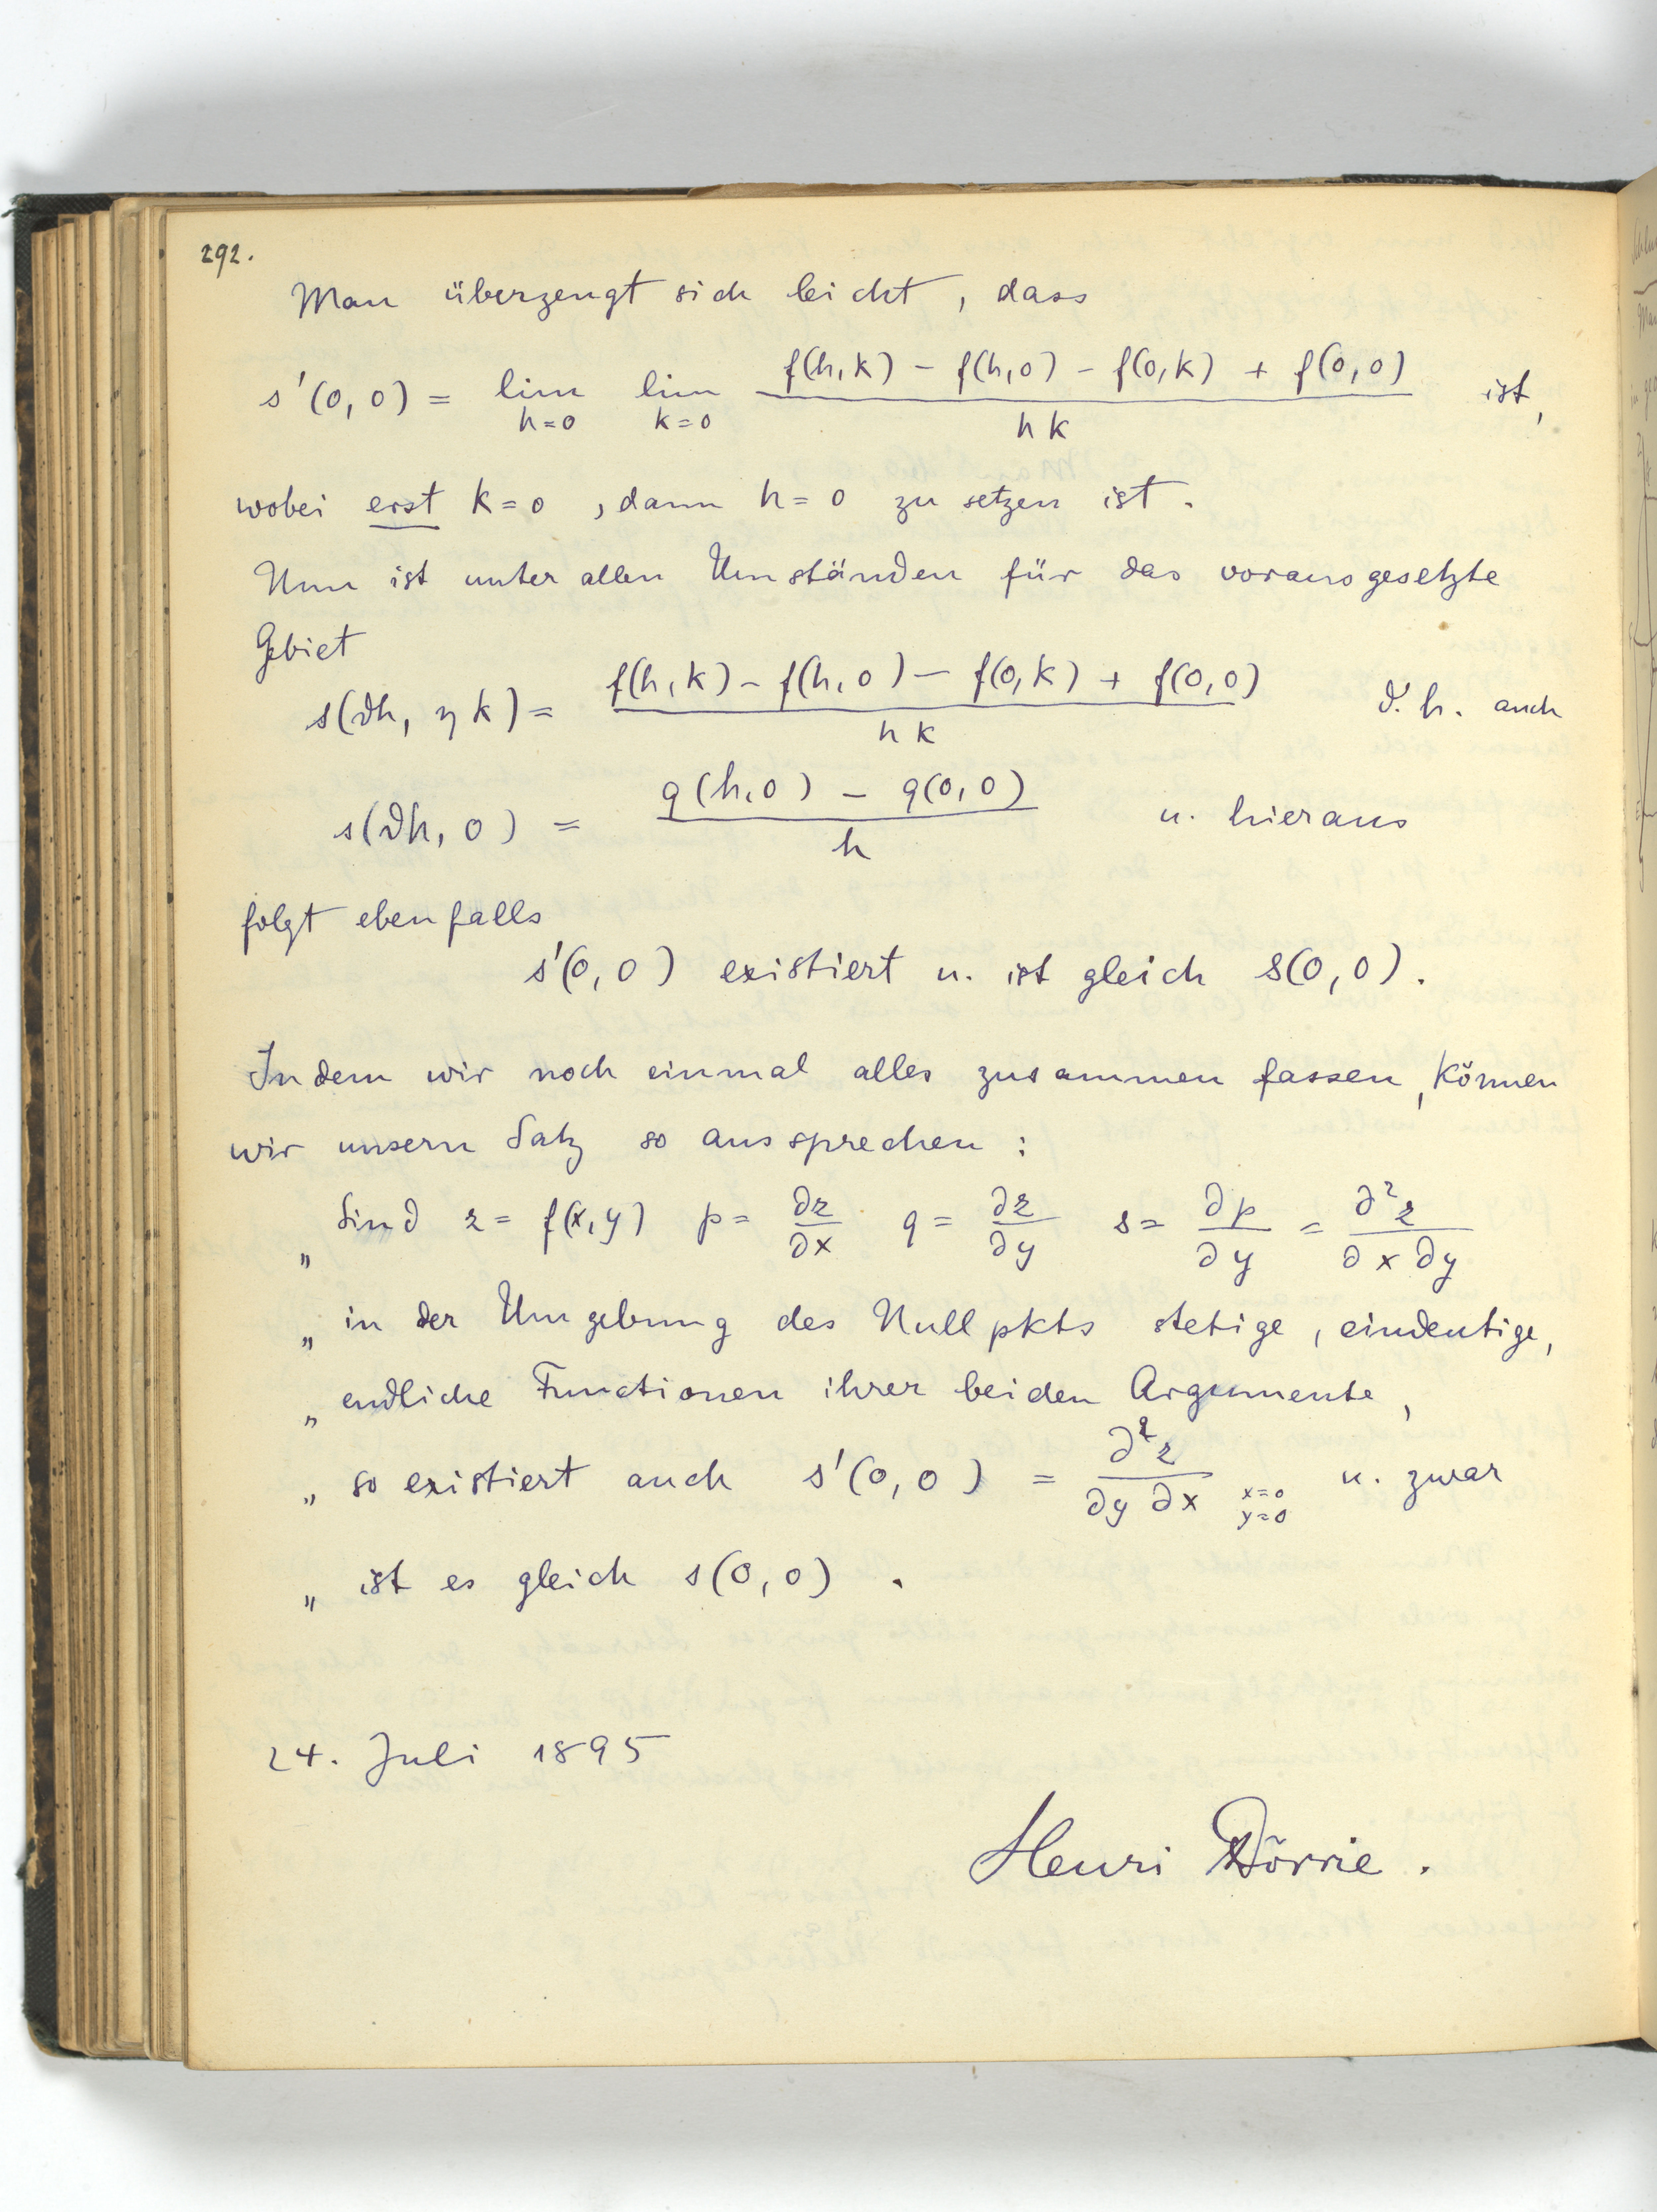 292.
Man überzeugt sich leicht, dass
s'(0,0) = lim_{h=0} lim_{k=0} \frac{f(h,k) - f(h,0) - f(0,k) + f(0,0)}{hk} ist,
wobei erst k=0, dann h=0 zu setzen ist.
Nun ist unter allen Umständen für das vorausgesetzte
Gebiet
s(ϑh, ηk) = \frac{f(h,k) - f(h,0) - f(0,k) + f(0,0)}{hk} d. h. auch
s(ϑh, 0) = \frac{q(h,0) - q(0,0)}{h} u. hieraus
folgt ebenfalls
s'(0,0) existiert u. ist gleich s(0,0).
Indem wir noch einmal alles zusammen fassen, können
wir unsern Satz so aussprechen:
„ Sind z = f(x,y) p = \frac{∂z}{∂x} q = \frac{∂z}{∂y} s = \frac{∂p}{∂y} = \frac{∂²z}{∂x ∂y}
„ in der Umgebung des Nullpkts stetige, eindeutige,
„ endliche Functionen ihrer beiden Argumente,
„ so existiert auch s'(0,0) = \frac{∂²z}{∂y ∂x} _{x=0 y=0} u. zwar
„ ist es gleich s(0,0).
24. Juli 1895
Henri Dörrie.